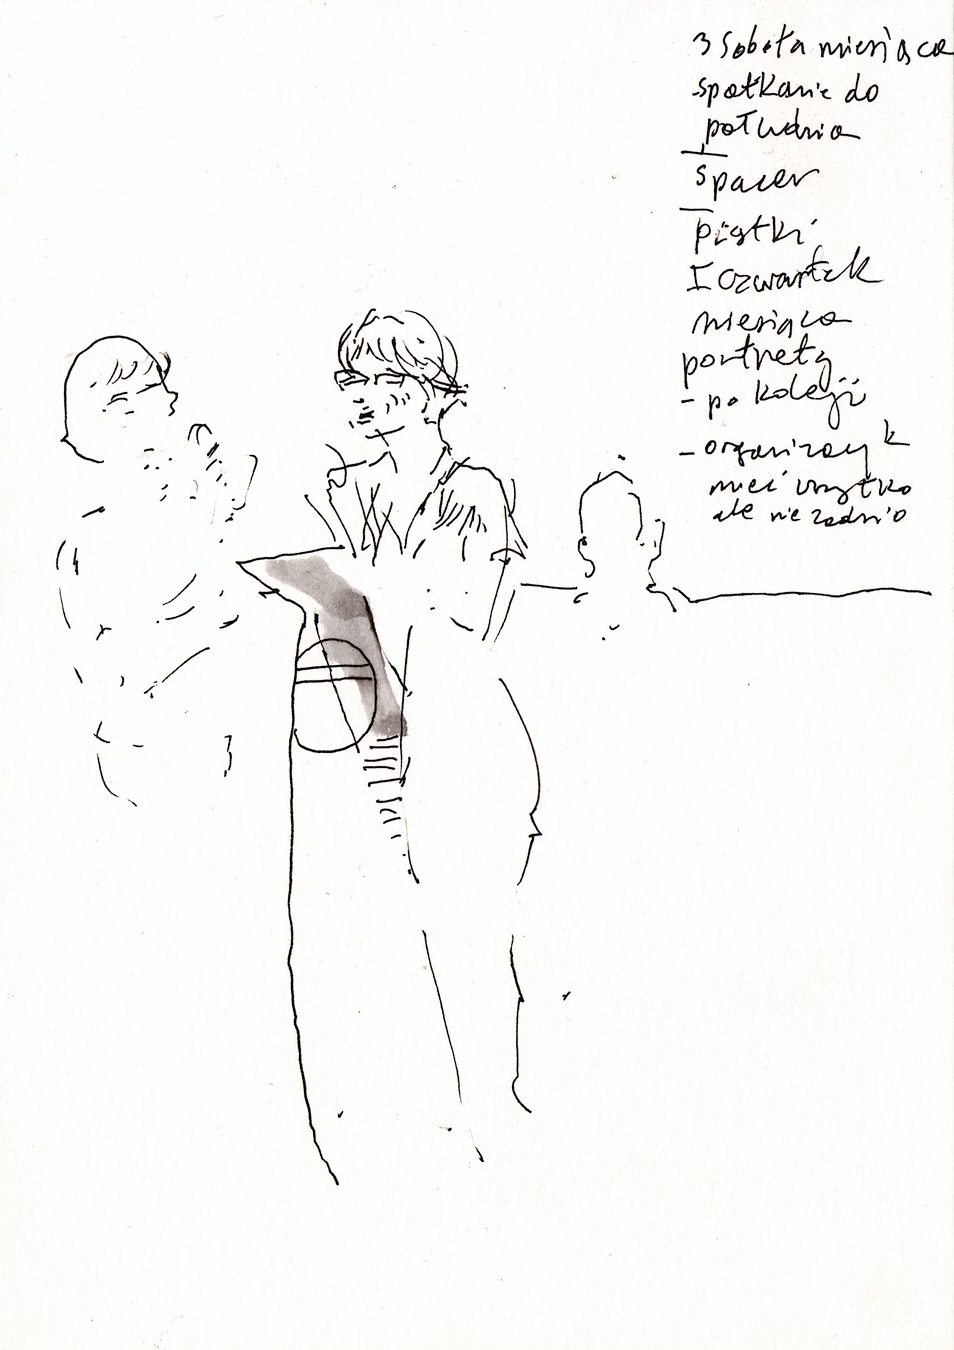 3 sobota miesiąca
spotkanie do
południa
spacer
piątki
I czwartek
miesiąca
portrety
- po koleji
- organizacyjk
mieć wszytko
ale nie